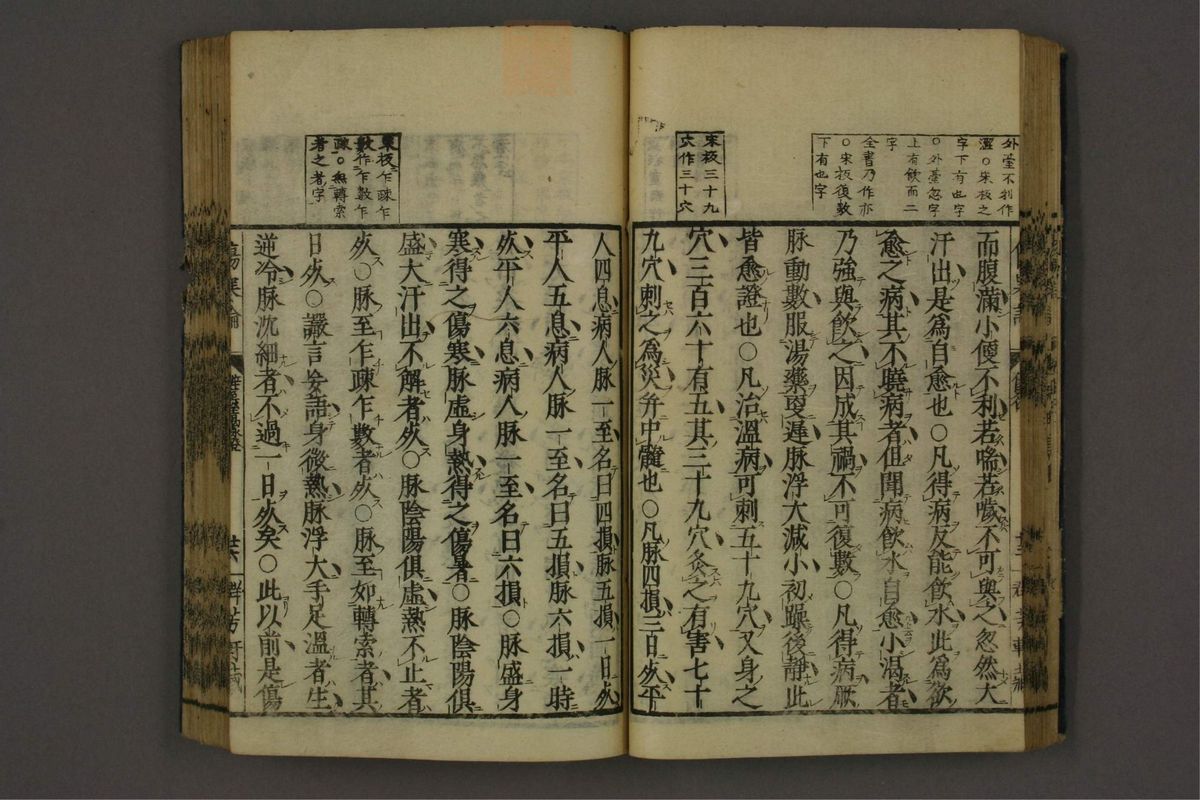 外臺不利作
澀○宋板之
字下有也字
○外臺忽字
上有飲而二
字
全書乃作亦
○宋板復數
下有也字
而腹滿小便不利若喘若噦不可與之忽然大
汗出是爲自愈也○凡得病反能飲水此爲欲
愈之病其不曉病者但聞病飲水自愈小渴者
乃強與飲之因成其禍不可復數○凡得病厥
脉動數服湯藥更遲脉浮大減小初躁後靜此
皆愈證也○凡治溫病可刺五十九穴又身之
宋板三十九
穴作三十穴
穴三百六十有五其三十九穴灸之有害七十
九穴刺之爲災并中髓也○凡脉四損三日死平
人四息病人脉一至名曰四損脉五損一日死
平人五息病人脉一至名曰五損脉六損一時
死平人六息病人脉一至名曰六損○脉盛身
寒得之傷寒脉虛身熱得之傷暑○脉陰陽俱
宋板乍疎乍
數作乍數乍
疎○無轉索
者之者字
盛大汗出不解者死○脉陰陽俱虛熱不止者
死○脉至乍疎乍數者死○脉至如轉索者其
日死○讝言妄語身微熱脉浮大手足溫者生
逆冷脉沈細者不過一日死矣○此以前是傷